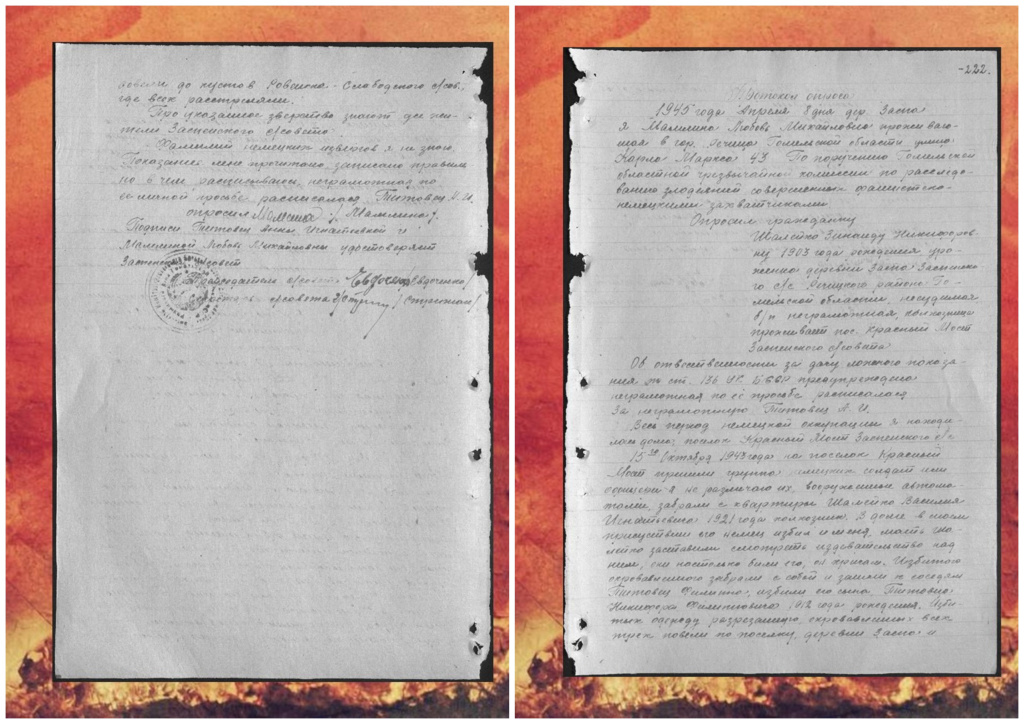 довели до кустов Ровенско-Слободского с/сов.,
где всех расстреляли.
Про указанное зверство знают все жи-
тели Заспенского с/совета.
Фамилий немецких извергов я не знаю.
Показание мне прочитано, записано правиль
но в чем расписываюсь, неграмотная, по
личной просьбе расписалась Титовец А.И.
опросил / Малигина /.
Подписи Титовец Анны Игнатьевной и
Малигиной Любовь Михайловны удостоверяет
Заспенский с/совет
Председатель с/совета /Евдоченко/
с/совета
-222.
Протокол опроса
1945 года Апреля 8 дня дер. Заспа
я Малигина Любовь Михайловна проживаю-
щая в гор. Речица Гомельской области улица
Карла Маркса 43. По поручению Гомельской
областной чрезвычайной комиссии по расследо-
ванию злодеяний совершенных фашистско-
немецкими захватчиками
Опросил гражданку
Шаметко Зинаиду Никифоров-
ну 1903 года рождения уро-
женка деревни Заспа Заспенско-
го с/с Речицкого района Го-
мельской области, несудимая
б/п неграмотная, колхозница
проживает пос. Красный Мост
Заспенского с/совета
Об ответственности за дачу ложного показа-
ния по ст. 136 УК БССР предупреждена
неграмотная по её просьбе расписалась
За неграмотную Титовец А. И.
Весь период немецкой оккупации я находи-
лась дома, поселок Красный Мост Заспенского с/с
15го Октября 1943 года на поселок Красный
Мост пришли группа немецких солдат или
я не различаю их, вооруженные автома-
тами, забрали с квартиры Шаметко Василия
Игнатьевича 1921 года колхозник. В доме в моем
присутствии его немец избил и меня, мать
заставили смотреть издевательство над
ним, они настолько били его, он кричал. Избитого
окровавленного забрали с собой и зашли к соседям
Титовец Филиппа, избили его сына Титовца
Никифора Филипповича 1912 года рождения. Изби
тых одежду разрезанную, окровавленных всех
трех повели по поселку, деревни Заспа и